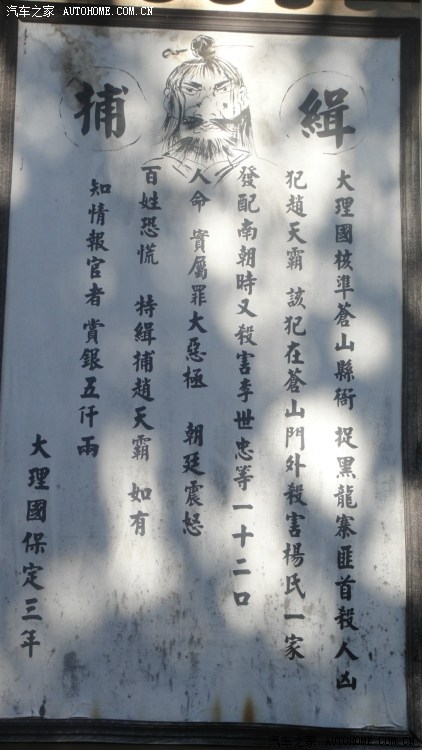 汽车之家 AUTOHOME.COM.CN
緝捕
大理國核準蒼山縣衙 捉黑龍寨匪首殺人凶
犯趙天霸 該犯在蒼山門外殺害楊氏一家
發配南朝時又殺害李世忠等一十二口
人命 實屬罪大惡極 朝廷震怒
百姓恐慌 特緝捕趙天霸 如有
知情報官者 賞銀五仟兩
大理國保定三年
汽车之家 AUTOHOME.COM.CN